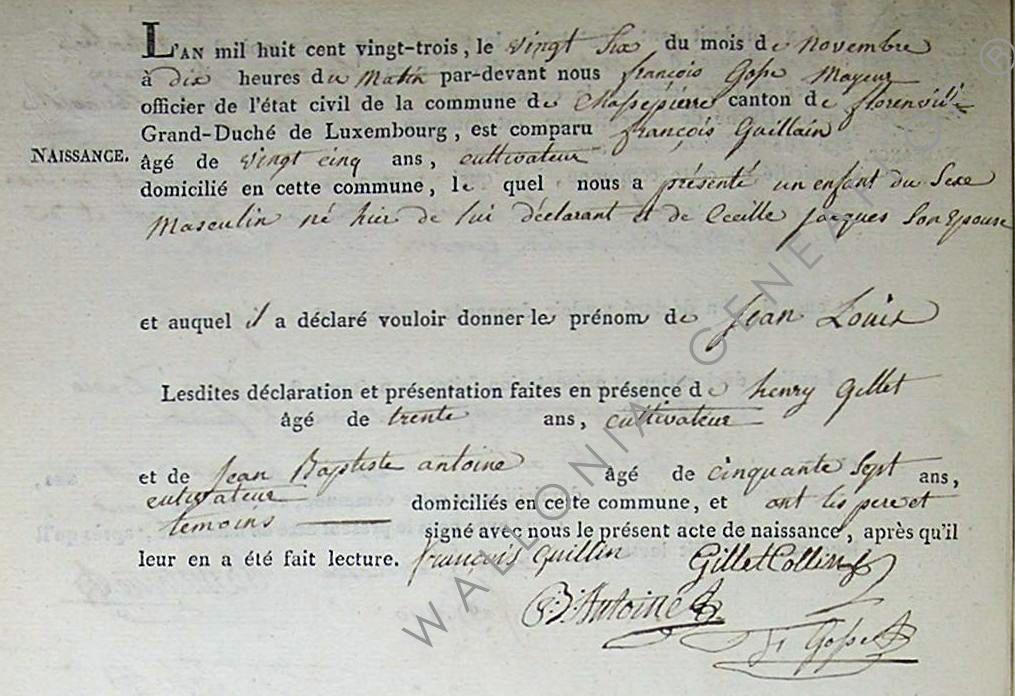 L'AN mil huit cent vingt-trois, le vingt six du mois de novembre
à dix heures du matin par-devant nous françois Gosse Mayeur
officier de l'état civil de la commune de Chassepierre canton de florenville
Grand-Duché de Luxembourg, est comparu françois Guillain
NAISSANCE. âgé de vingt cinq ans, cultivateur
domicilié en cette commune, le quel nous a présenté un enfant du Sexe
Masculin né hier de lui déclarant et de Cecille jacques Son Epouse
et auquel il a déclaré vouloir donner le prénom de jean Louis
Lesdites déclaration et présentation faites en présence de henry Gillet
âgé de trente ans, cultivateur
et de jean Baptiste antoine âgé de cinquante Sept ans,
cultivateur domiciliés en cette commune, et ont les pere et
temoins signé avec nous le présent acte de naissance, après qu'il
leur en a été fait lecture. françois Guillin Gillet Collin
J:B:Antoine
F Gosse
WALLONIA GENEA
®